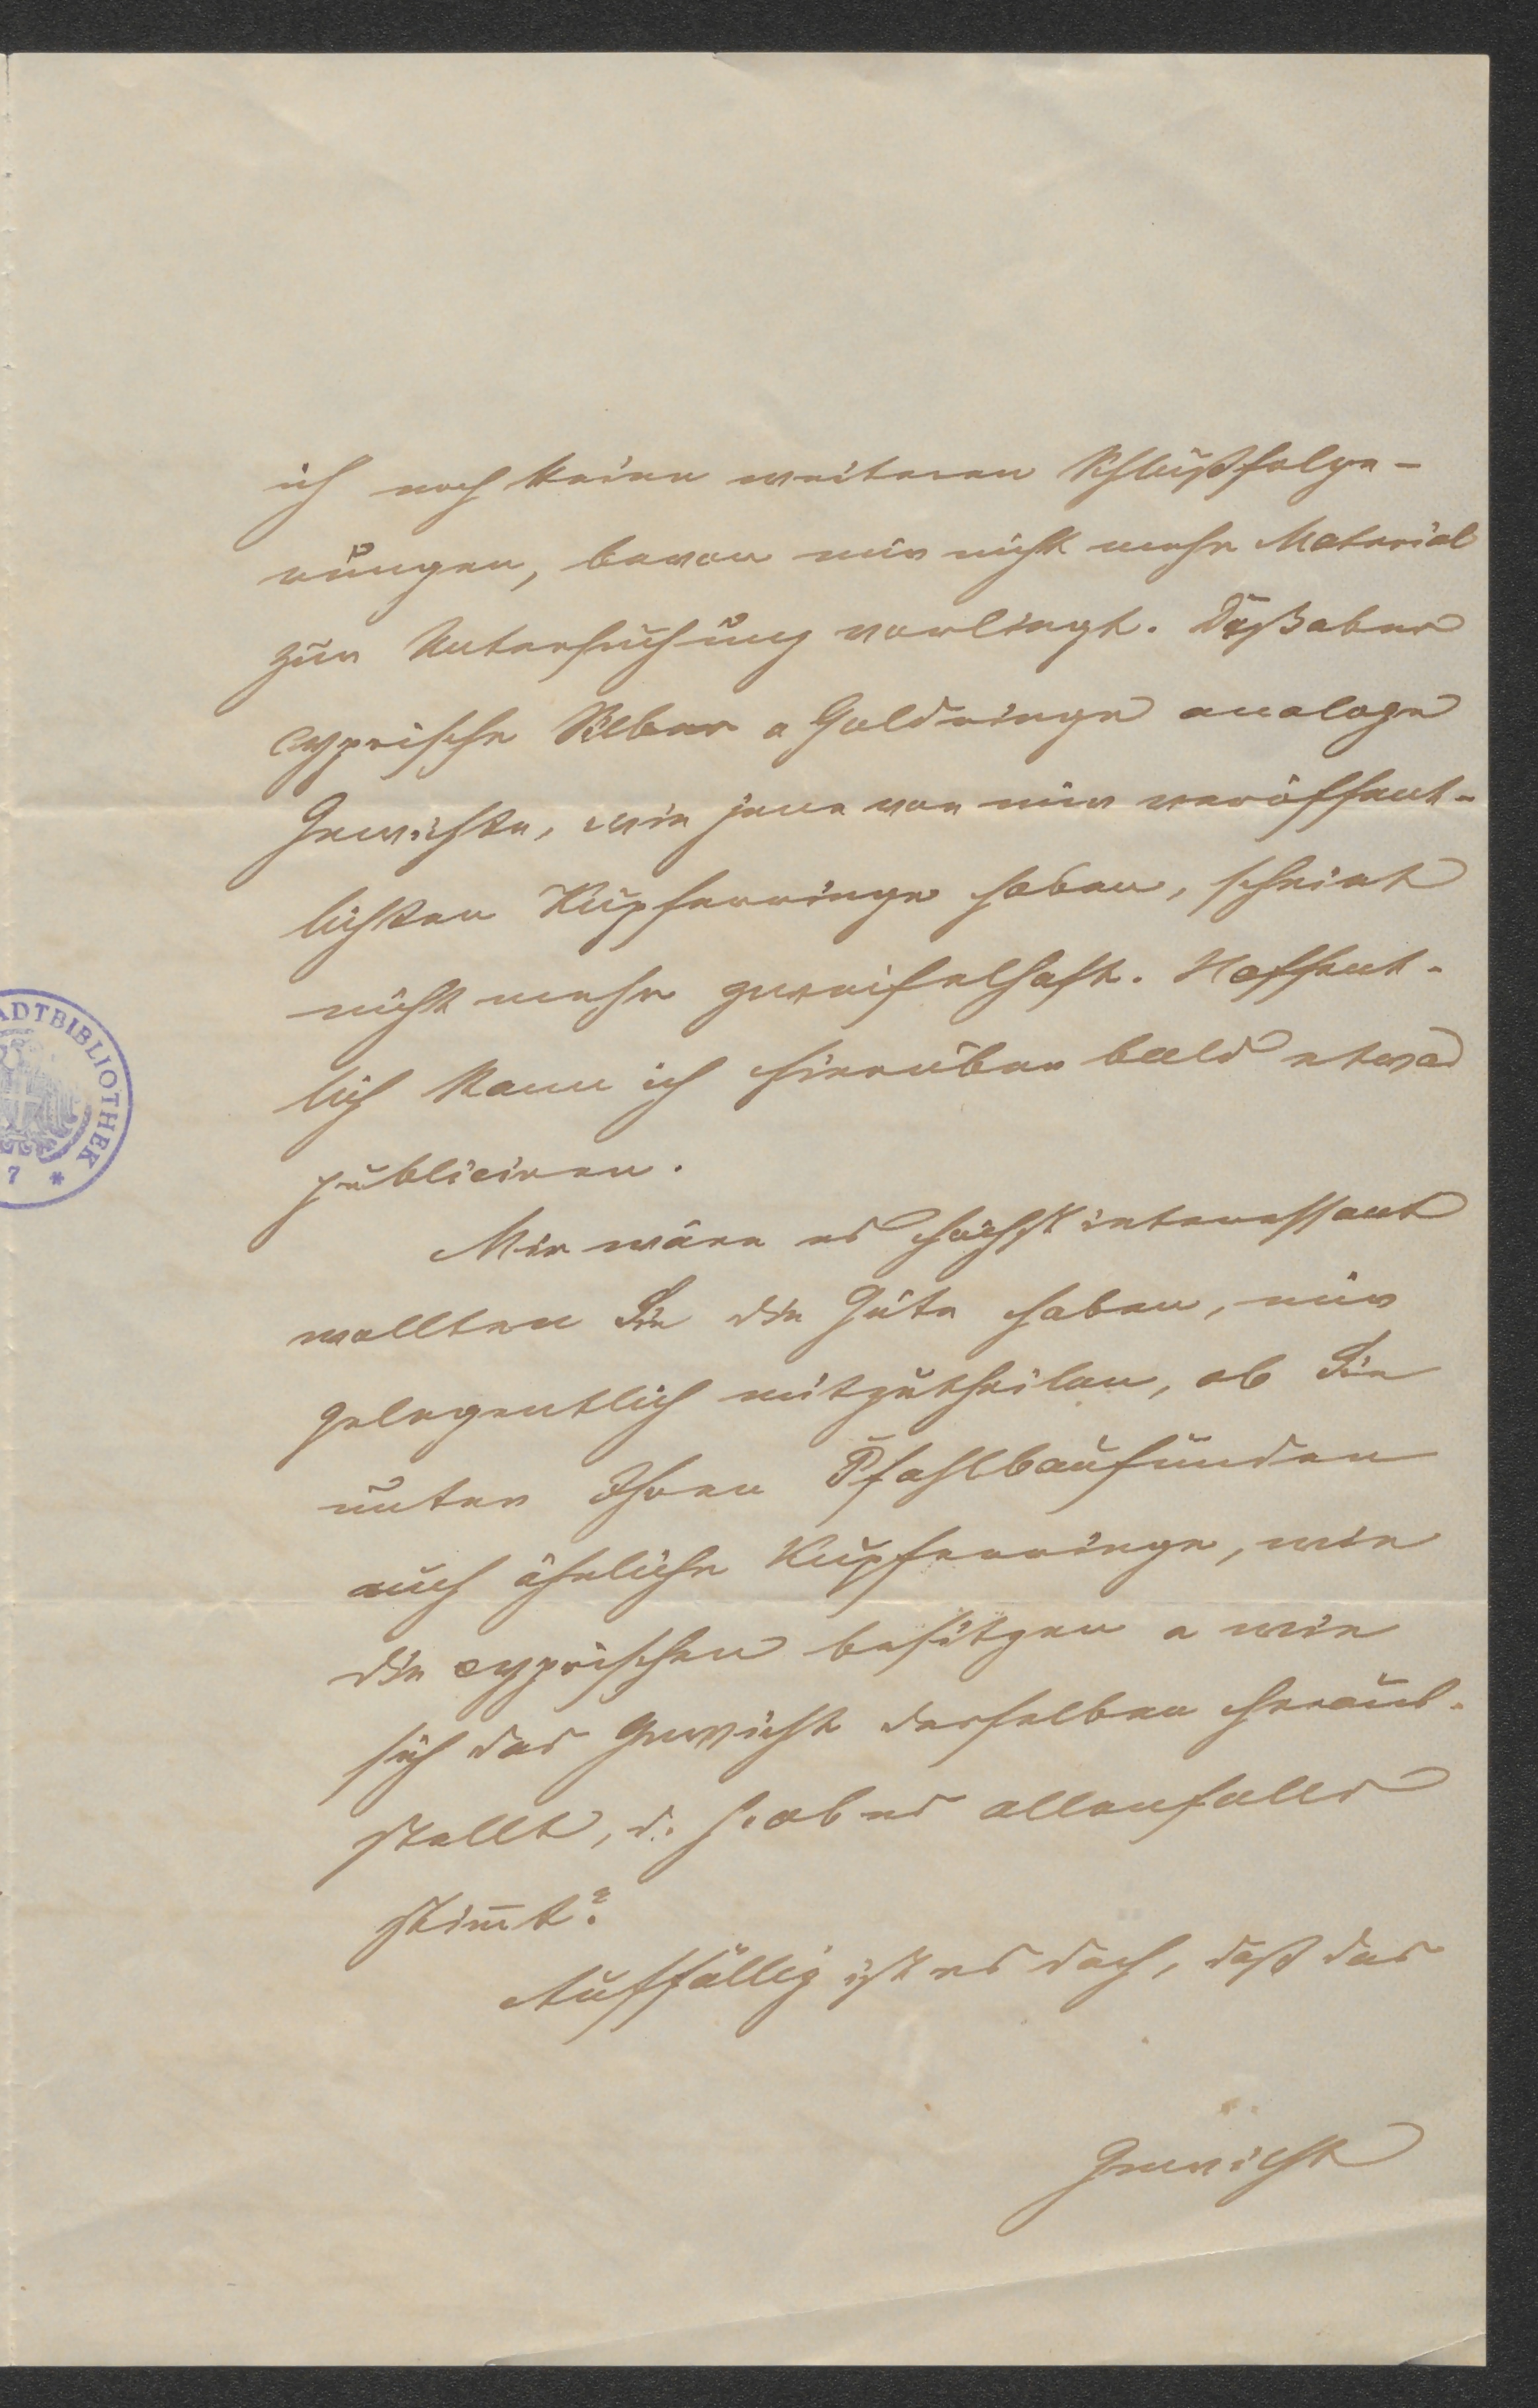 ich noch keine weiteren Schlußfolge-
rungen, bevor mir nicht mehr Material
zur Untersuchung vorliegt. Daß aber
cyprische Silber u Goldringe analoge
Gewichte, wie jene von mir veröffent-
lichten Kupferringe haben, scheint
nicht mehr zweifelhaft. Hoffent-
lich kann ich hierüber bald etwas
publiciren.
Mir wäre es höchst interessant
wollten Sie die Güte haben, mir
gelegentlich mitzutheilen, ob Sie
unter Ihren Pfahlbaufunden
auch ähnliche Kupferringe, wie
die cyprischen besitzen u wie
sich das Gewicht derselben heraus-
stellt, d. h. ob es allenfalls
stim̅t?
Auffällig ist es doch, daß das
Gewicht
ADTBIBLIOTHEK
7 *